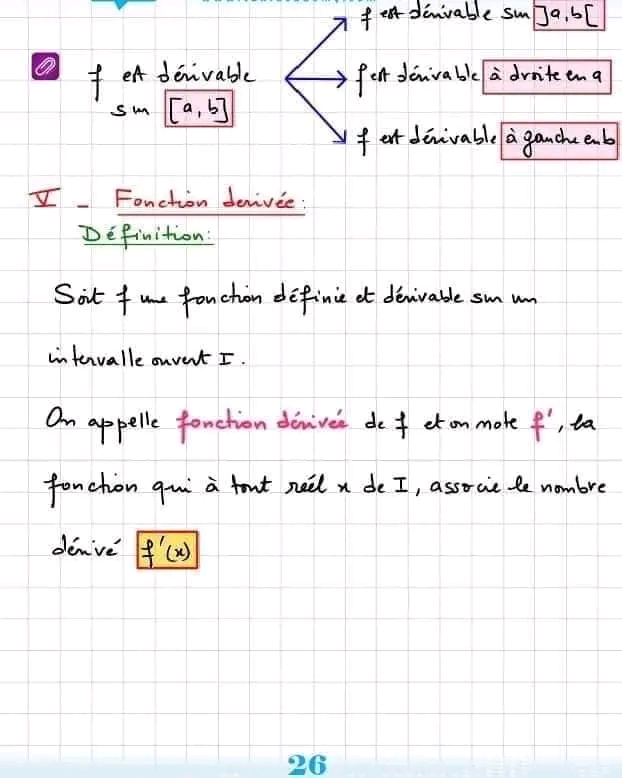 f est dérivable sur ]a,b[
f est dérivable
sur [a,b]
f est dérivable à droite en a
f est dérivable à gauche en b
V - Fonction derivée:
Définition:
Soit f une fonction définie et dérivable sur un
intervalle ouvert I.
On appelle fonction dérivée de f et on note f', la
fonction qui à tout réel x de I, associe le nombre
dérivé f'(x)
26